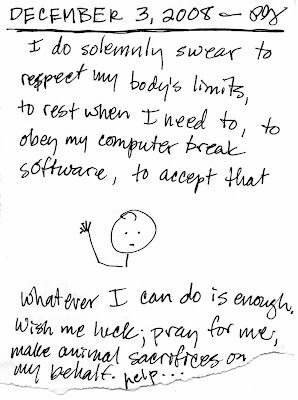 DECEMBER 3, 2008 —
I do solemnly swear to
respect my body's limits,
to rest when I need to, to
obey my computer break
software, to accept that
whatever I can do is enough.
Wish me luck; pray for me;
make animal sacrifices on
my behalf. help...